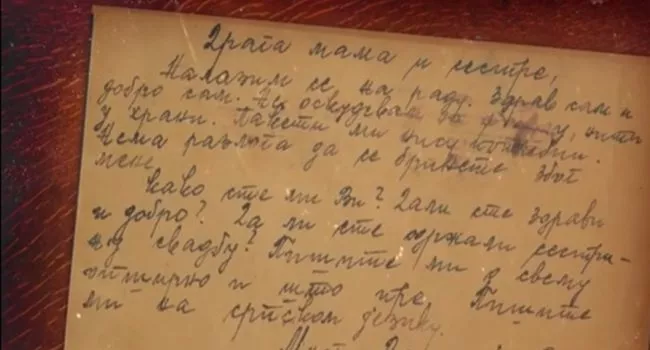 Драга мама и сестре,
Налазим се на раду. Здрав сам и
добро сам. Не оскудевам за ништа
у храни. Пакети ми нису потребни.
Нема разлога да се бринете због
мене.
Како сте ми Ви? Дали сте здрави
и добро? Да ли сте одржали сестри-
ну свадбу? Пишите ми о свему
опширно и што пре. Пишите
ми на српском језику.